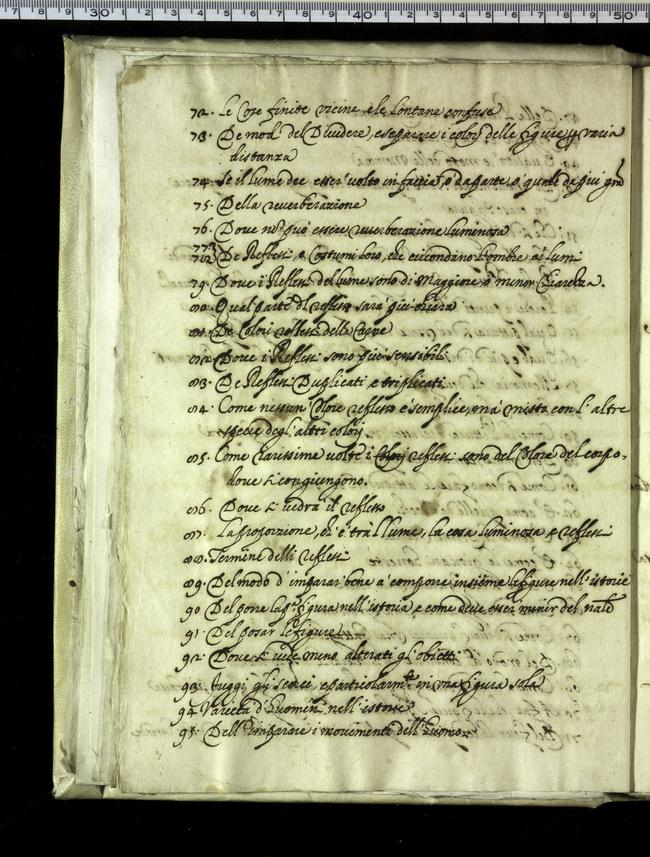 30 40 50
72. Le Cose finite vicine e le lontane confuse
73. De modi del Dividere, e separare i colori delle figure
distanza
74. Se il lume dee esser volto in faccia, o da parte, o quale da piu
75. Della reverberazione
76. Dove non puo essere reverberazione luminosa
De Reflessi, che circondano l'ombre
79. Dove i Reflessi del lume sono di Maggiore, o minor Chiarezza.
80. Qual parte del reflesso sara piu chiara
81. De Colori reflessi della
82. Dove i Reflessi sono piu sensibili
83. De Reflessi Duplicati e triplicati
84. Come nessun Colore reflesso e semplice, ma misto con l'altre
specie degl'altri colori
85. Come rarissime volte i Colori reflessi sono del Colore del corpo,
dove si congiungono.
86. Dove si vedra il reflesso
87. La proporzione, ch'è tra'l lume, la cosa luminosa e reflessi
88. Termine delli reflessi
89. Del modo d'imparar bene a comporre insieme le figure nell'istorie
90 Del porre la figura nell'istoria, e come deve esser minor del
91. Del posar le figure
92. Dove si vede meno alterati gl'obietti
93. Fuggi gli scorci, e particolarmente in una figura sola
94 Varieta d'huomini nell'istorie
95. Dell'imparare i movimenti dell'huomo